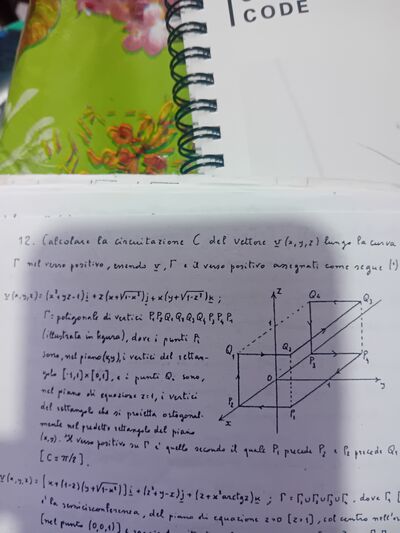 CODE
12. Calcolare la circuitazione C del vettore v(x,y,z) lungo la curva
Γ nel verso positivo, essendo v, Γ e il verso positivo assegnati come segue (*)
Γ: poligonale di vertici
(illustrata in figura), dove i punti Pi
sono, nel piano (x,y), i vertici del rettan-
golo [-1,1]×[0,1], e i punti Qi sono,
nel piano di equazione z=1, i vertici
del rettangolo che si proietta ortogonal-
mente nel predetto rettangolo del piano
(x,y). Il verso positivo su Γ è quello secondo il quale P1 precede P2 e P2 precede Q1
[C=π/2].
z
Q4
Q3
1
Q1
Q2
O
P3
P4
y
1
P2
P1
x
è la semicirconferenza, del piano di equazione z=0 [z=1], col centro nell'or
[nel punto (0,0,1)]